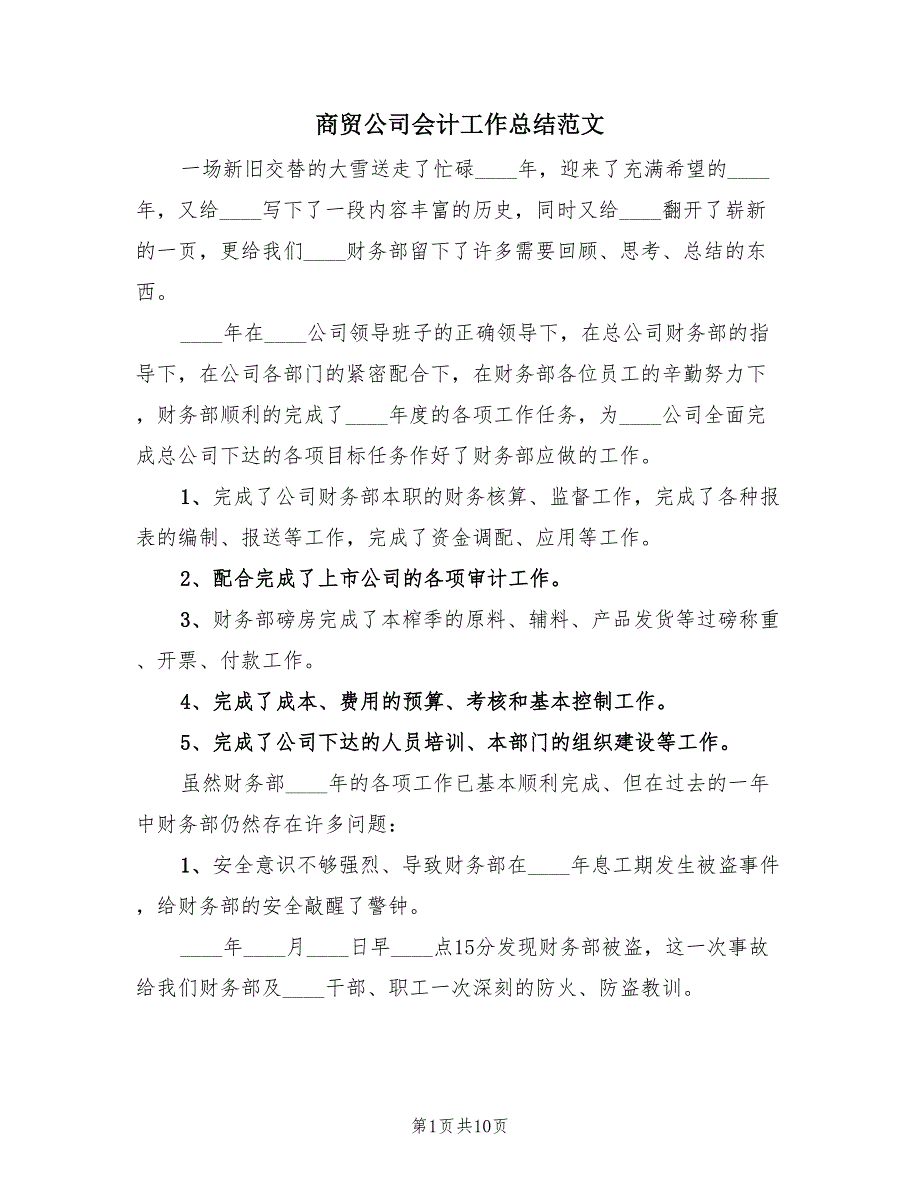 商贸公司会计工作总结范文
一场新旧交替的大雪送走了忙碌____年，迎来了充满希望的____
年，又给____写下了一段内容丰富的历史，同时又给____翻开了崭新
的一页，更给我们____财务部留下了许多需要回顾、思考、总结的东
西。
____年在____公司领导班子的正确领导下，在总公司财务部的指
导下，在公司各部门的紧密配合下，在财务部各位员工的辛勤努力下
，财务部顺利的完成了____年度的各项工作任务，为____公司全面完
成总公司下达的各项目标任务作好了财务部应做的工作。
1、完成了公司财务部本职的财务核算、监督工作，完成了各种报
表的编制、报送等工作，完成了资金调配、应用等工作。
2、配合完成了上市公司的各项审计工作。
3、财务部磅房完成了本榨季的原料、辅料、产品发货等过磅称重
、开票、付款工作。
4、完成了成本、费用的预算、考核和基本控制工作。
5、完成了公司下达的人员培训、本部门的组织建设等工作。
虽然财务部____年的各项工作已基本顺利完成、但在过去的一年
中财务部仍然存在许多问题：
1、安全意识不够强烈、导致财务部在____年息工期发生被盗事件
，给财务部的安全敲醒了警钟。
____年____月____日早____点15分发现财务部被盗，这一次事故
给我们财务部及____干部、职工一次深刻的防火、防盗教训。
第1页共10页